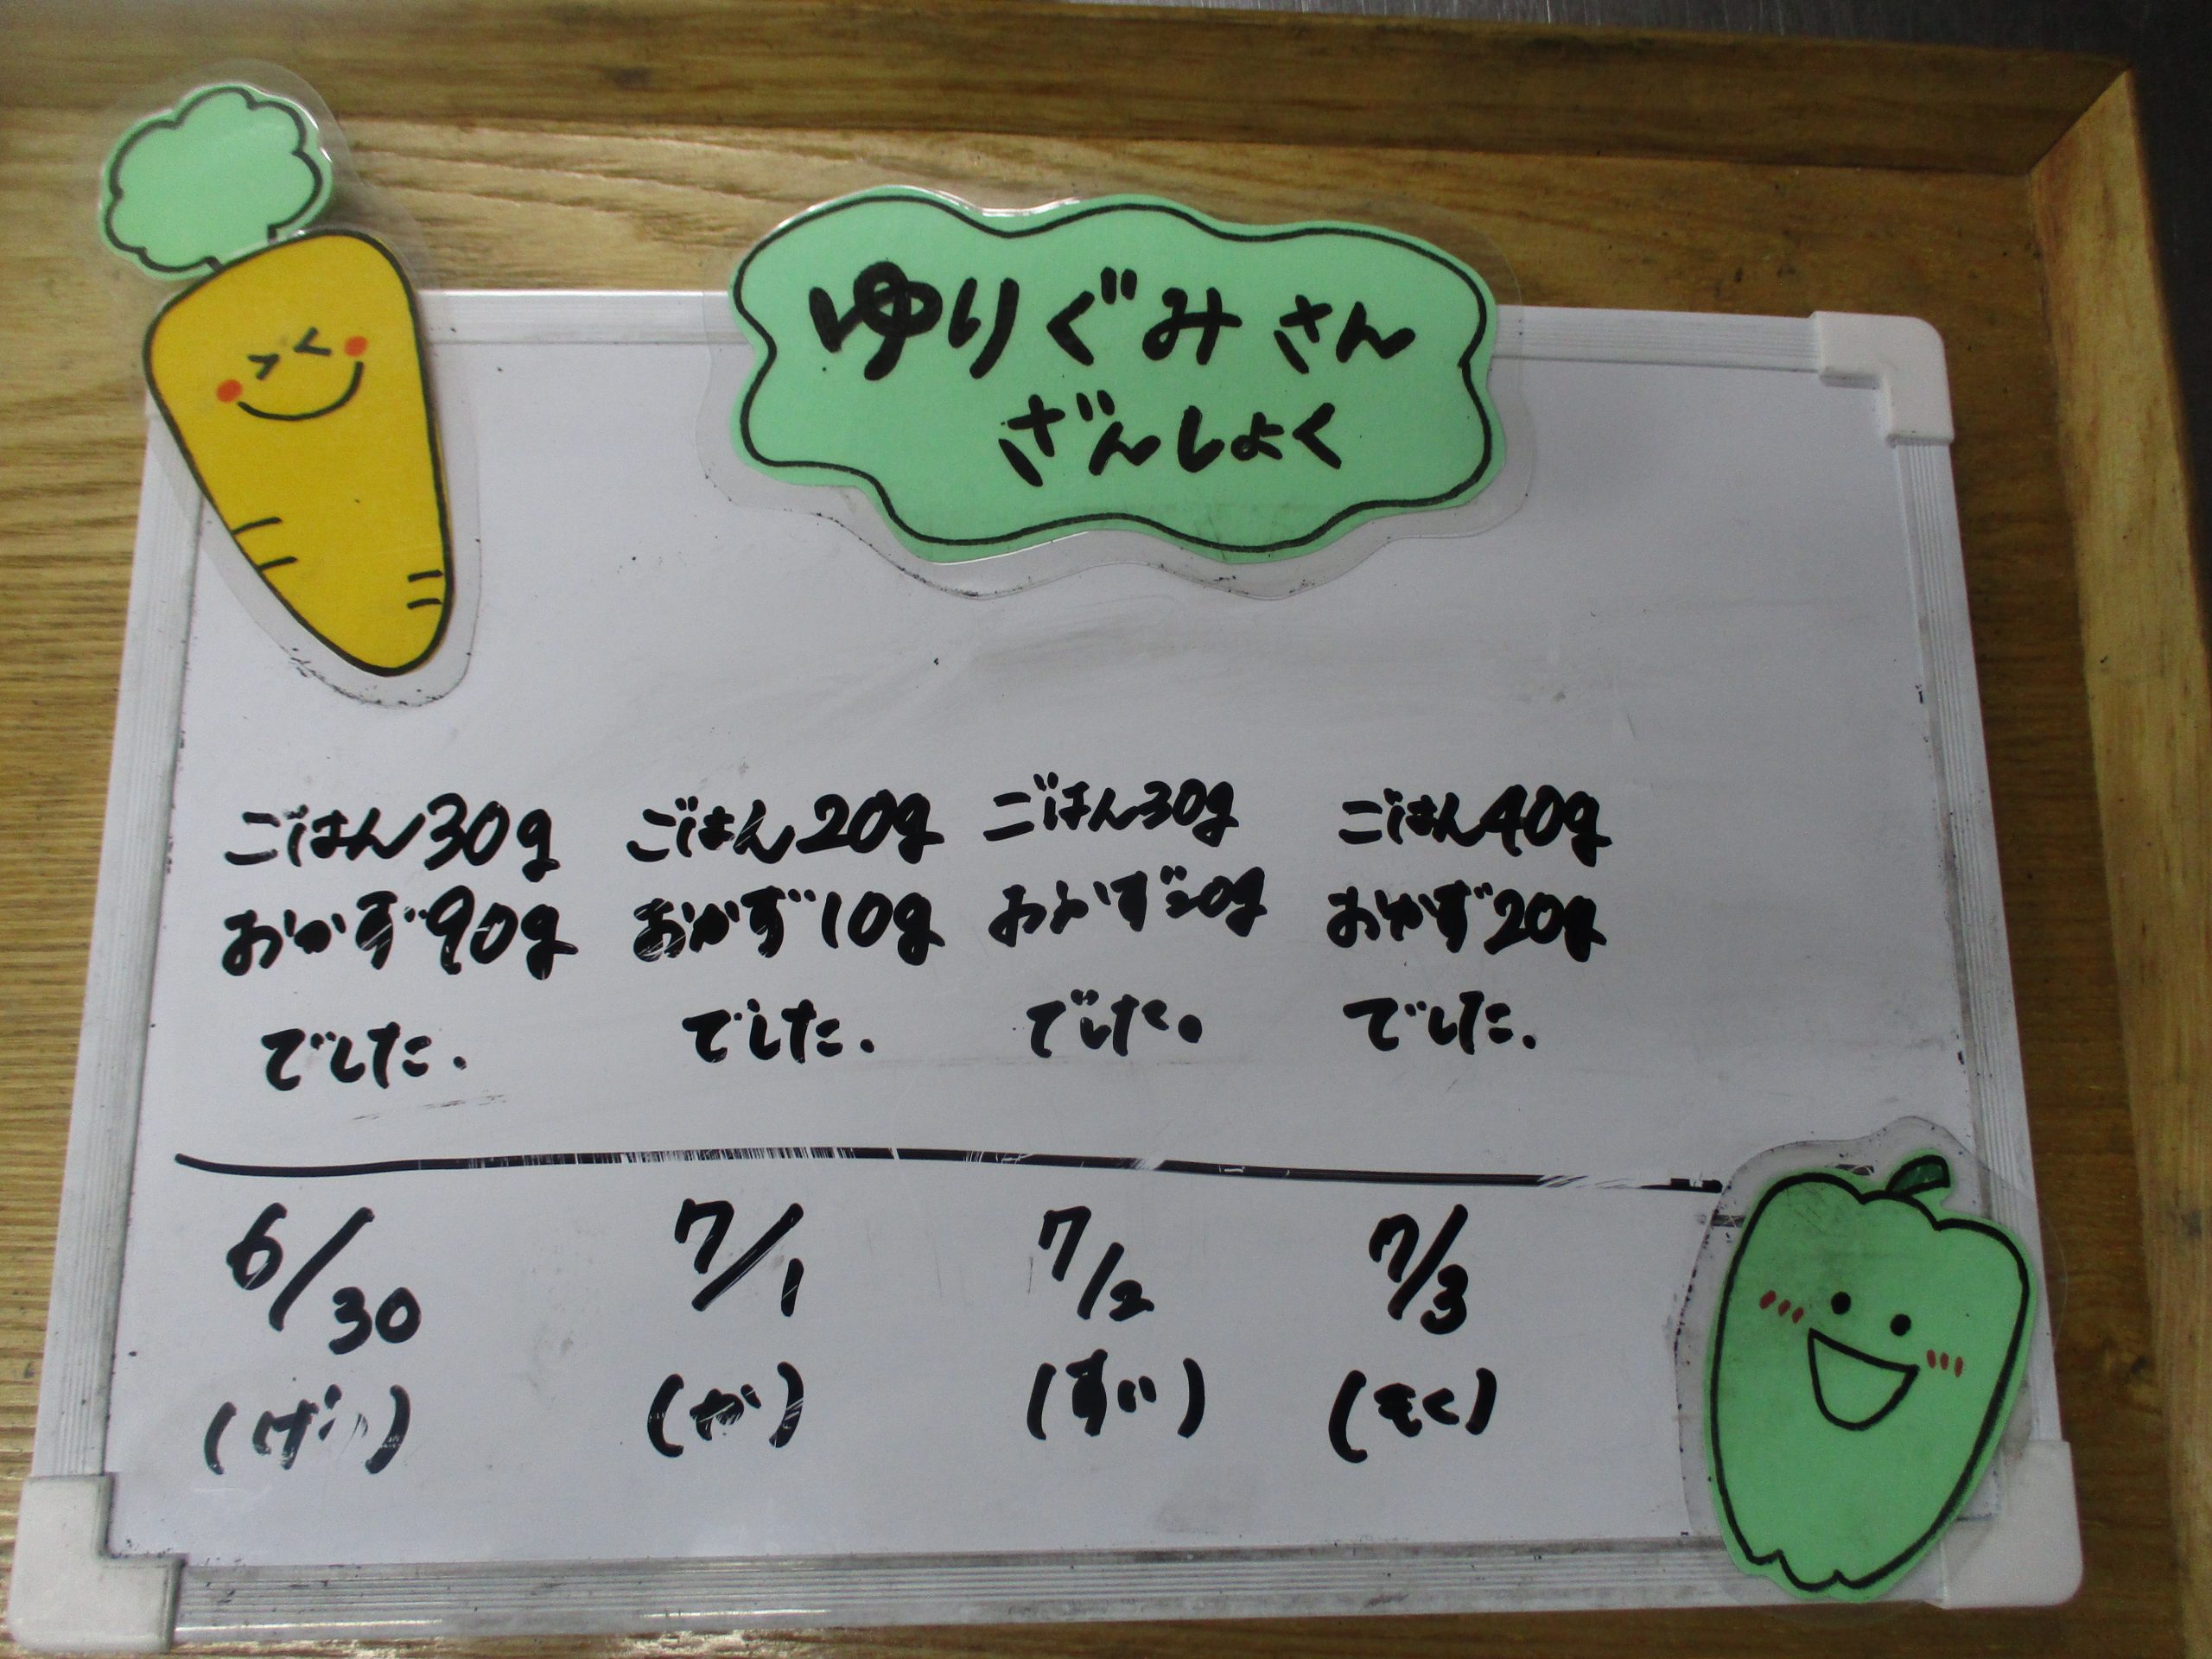 ゆりぐみさん
ざんしょく
ごはん30g
おかず90g
でした.
ごはん20g
おかず10g
でした.
ごはん30g
おかず20g
でした。
ごはん40g
おかず20g
でした.
6/30
(げつ)
7/1
(か)
7/2
(すい)
7/3
(もく)